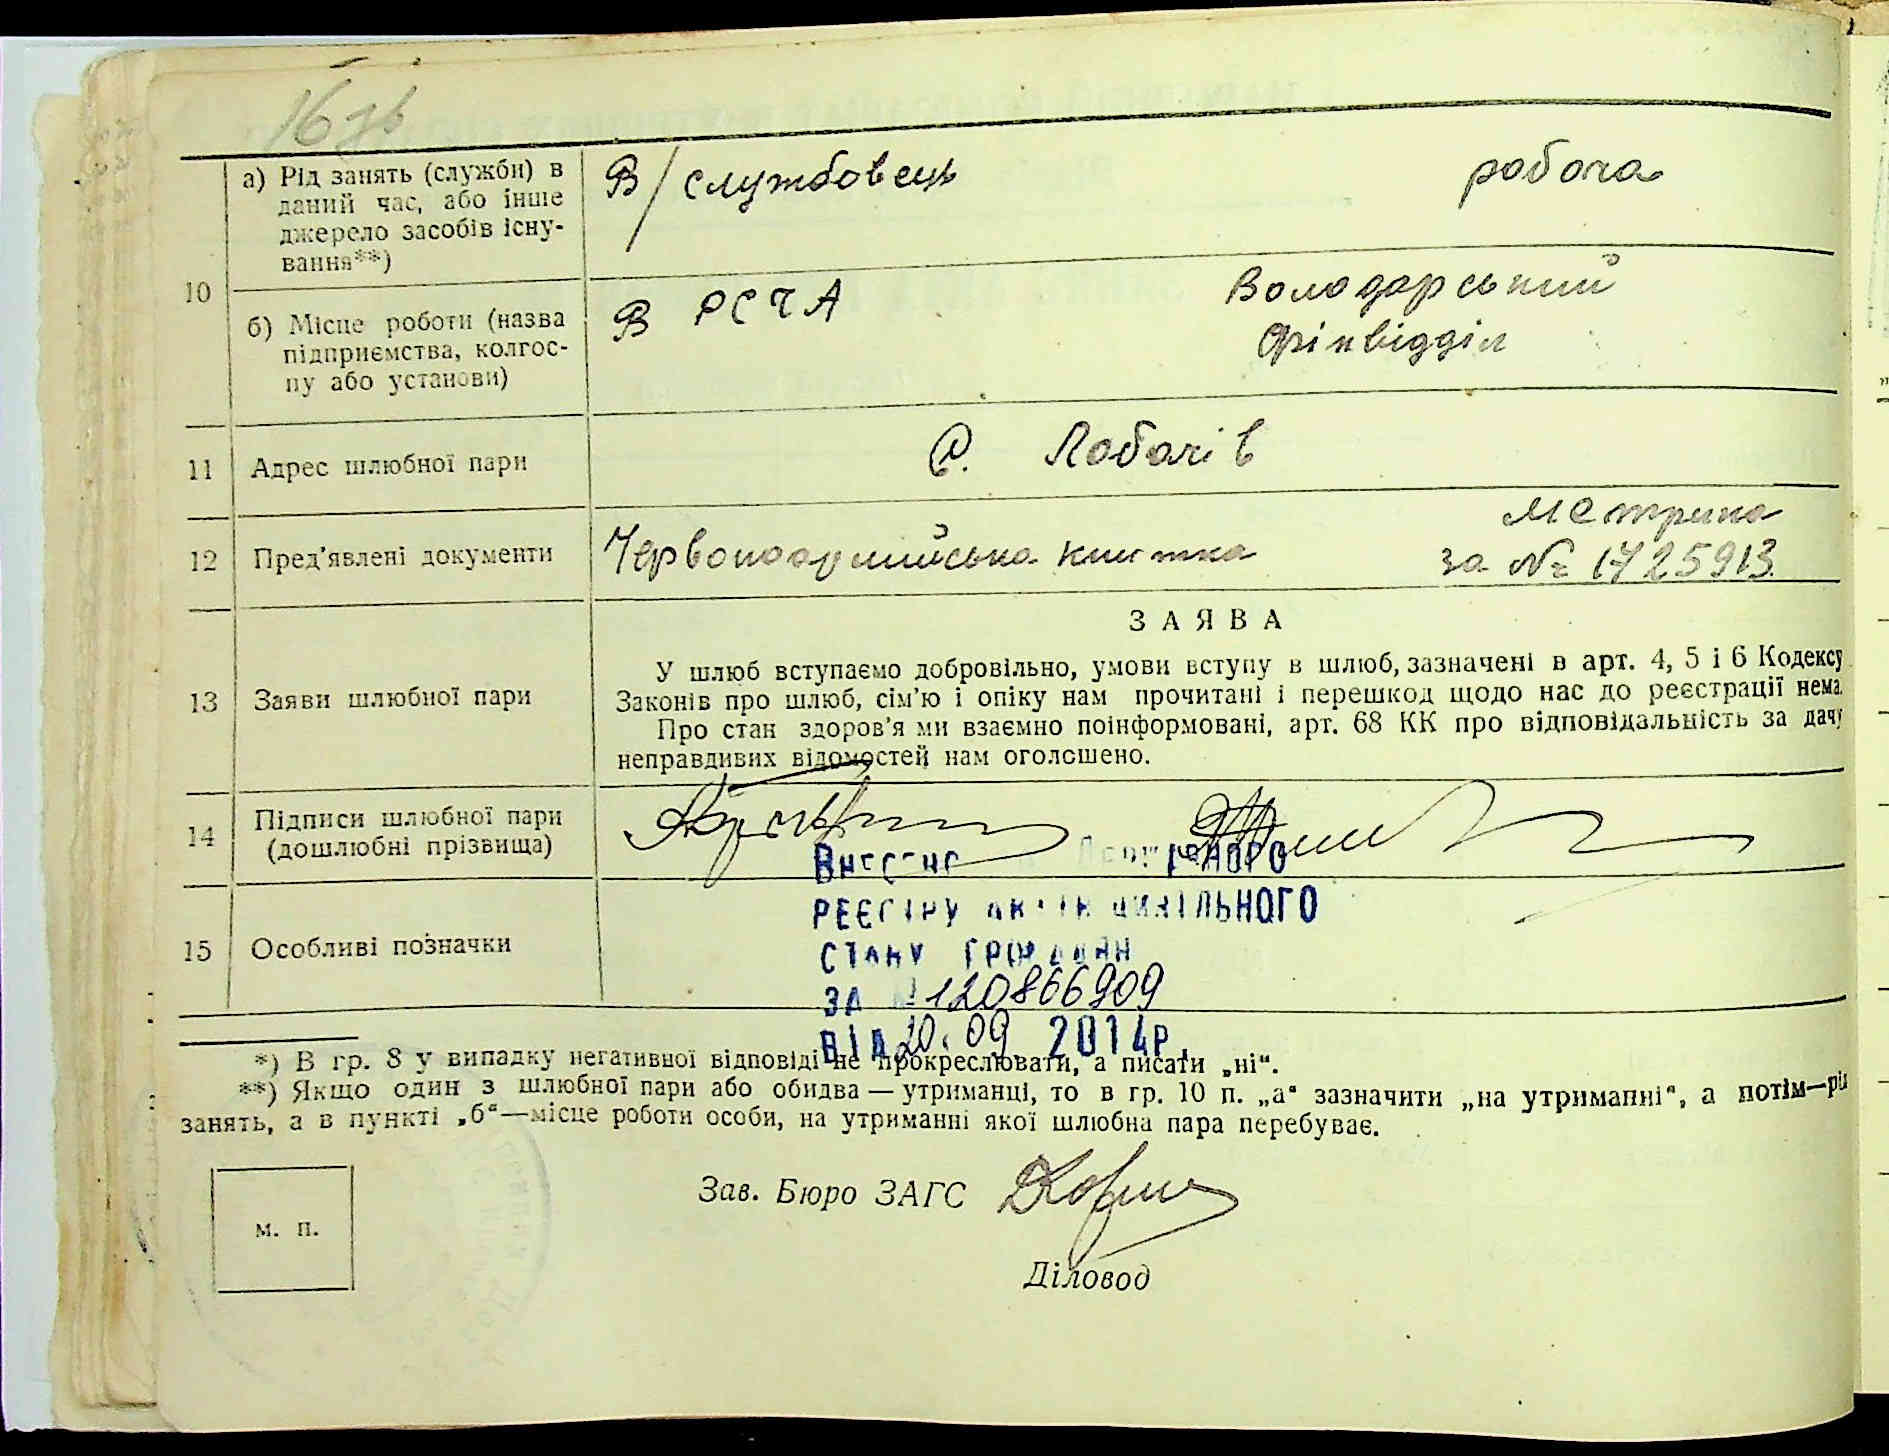 16 зв
а) Рід занять (служби) в
даний час, або інше
джерело засобів існу-
вання**)
В/службовець
робоча
10
б) Місце роботи (назва
підприємства, колгос-
пу або установи)
В РСЧА
Володарський
Фінвідділ
11 Адрес шлюбної пари
с. Лобачів
12 Пред'явлені документи
Червоноармійська книжка
Метрика
за № 1725913
13 Заяви шлюбної пари
ЗАЯВА
У шлюб вступаємо добровільно, умови вступу в шлюб, зазначені в арт. 4, 5 і 6 Кодексу
Законів про шлюб, сім'ю і опіку нам прочитані і перешкод щодо нас до реєстрації нема
Про стан здоров'я ми взаємно поінформовані, арт. 68 КК про відповідальність за дачу
неправдивих відомостей нам оголошено.
14 Підписи шлюбної пари
(дошлюбні прізвища)
Внесено
РЕЄСТРУ АКТІВ ЦИВІЛЬНОГО
СТАНУ ГРОМАДЯН
ЗА № 120866909
ВІД 20.09 2014р.
15 Особливі позначки
*) В гр. 8 у випадку негативної відповіді не прокреслювати, а писати „ні“.
**) Якщо один з шлюбної пари або обидва — утриманці, то в гр. 10 п. „а“ зазначити „на утриманні“, а потім—рід
занять, а в пункті „б“—місце роботи особи, на утриманні якої шлюбна пара перебуває.
м. п.
Зав. Бюро ЗАГС
Діловод